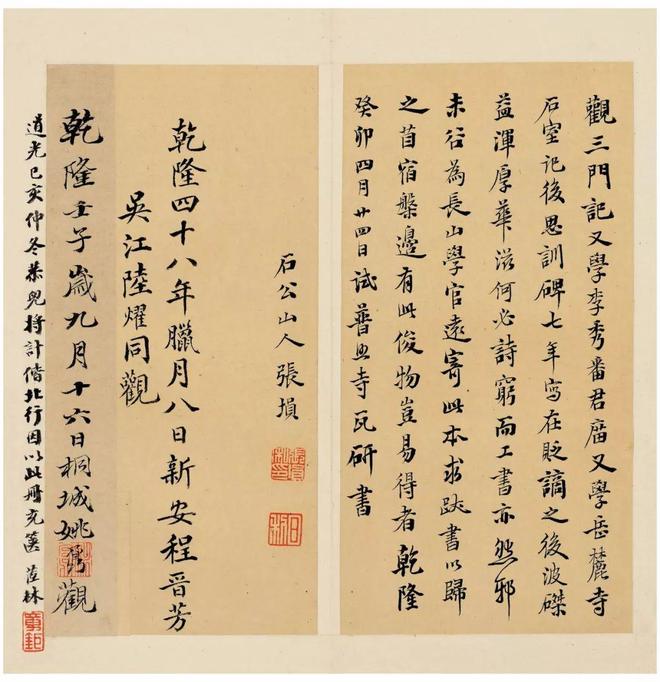 觀三門記又學李秀番君庿又學岳麓寺
石室記後思訓碑七年寫在貶謫之後波磔
益渾厚華滋何必詩窮而工書亦然邪
未谷為長山學官遠寄此本求跋書以歸
之苜宿槃邊有此俊物豈易得者乾隆
癸卯四月廿四日試普照寺瓦研書
石公山人張塤
乾隆四十八年臘月八日新安程晉芳
吳江陸燿同觀
乾隆壬子歲九月十六日桐城姚鼐觀
道光己亥仲冬恭兒將計偕北行因以此冊充篋 茝林
章鉅